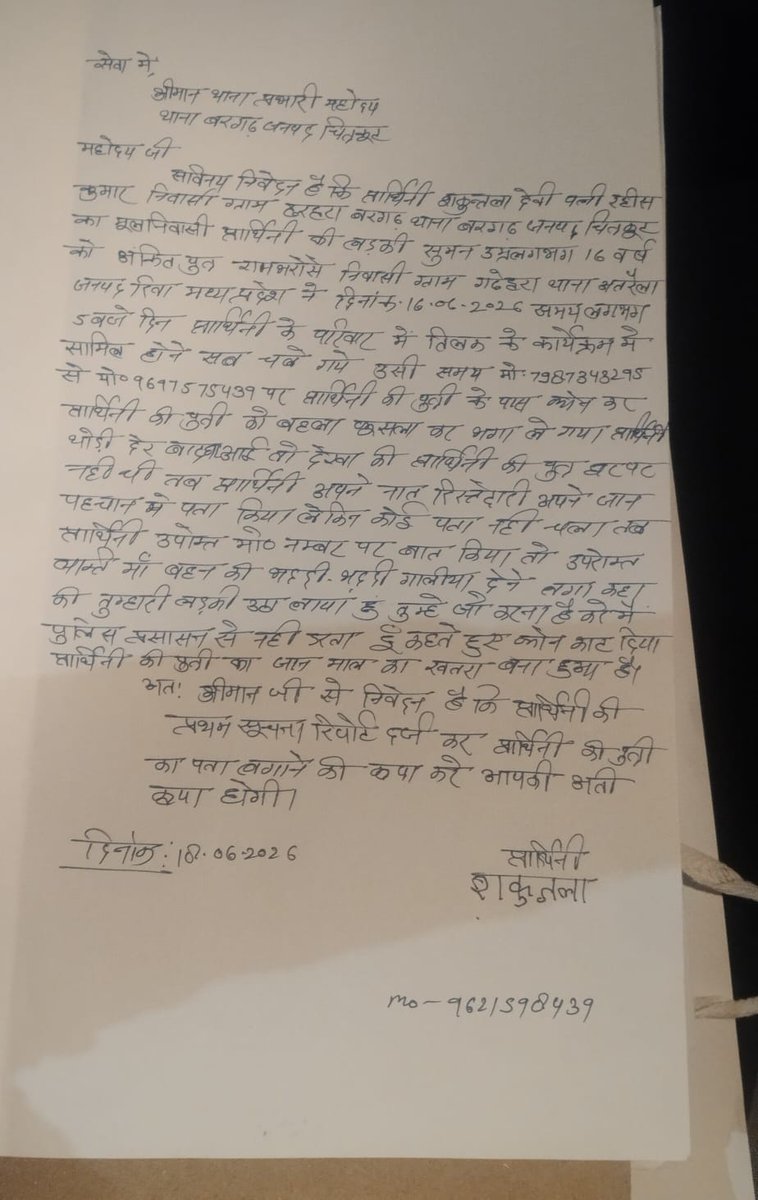 सेवा में,
श्रीमान थाना प्रभारी महोदय
थाना बरगढ़ जनपद चित्रकूट
महोदय जी
सविनय निवेदन है कि प्रार्थिनी शकुन्तला देवी पत्नी रहीस
कुमार निवासी ग्राम हरहरा बरगढ थाना बरगढ जनपद चित्रकूट
का मूलनिवासी प्रार्थिनी की लड़की सुमन उम्रलगभग 16 वर्ष
को अंकित पुत्र रामभरोसे निवासी ग्राम गढेहरा थाना अतरैला
जनपद रिवा मध्यप्रदेश ने दिनांक.16.06.2026 समय लगभग
5 बजे दिन प्रार्थिनी के परिवार में तिलक के कार्यक्रम मे
सामिल होने सब चले गये उसी समय मो.7987343295
से मो० 9697575439 पर प्रार्थिनी की पुत्री के पास फोन कर
प्रार्थिनी की पुत्री को बहला फुसला कर भगा ले गया प्रार्थिनी
थोडी देर बाद आई तो देखा की प्रार्थिनी की पुत्र घर पर
नही थी तब प्रार्थिनी अपने नात रिस्तेदारी अपने जान
पहचान मे पता किया लेकिन कोई पता नही चला तब
प्रार्थिनी उपरोक्त मो० नम्बर पर बात किया तो उपरोक्त
व्यक्ति माँ बहन की भद्दी-भद्दी गालीया देने लगा कहा
की तुम्हारी लड़की उठा लाया हूं तुम्हे जो करना है करे मै
पुलिस प्रसासन से नही डरता हूँ कहते हुए फोन काट दिया
प्रार्थिनी की पुत्री का जान माल का खतरा बना हुआ है।
अत! श्रीमान जी से निवेदन है कि प्रार्थिनी की
प्रथम सूचना रिपोर्ट दर्ज कर प्रार्थिनी की पुत्री
का पता लगाने की कृपा करे आपकी अती
कृपा होगी।
दिनांक: 18.06.2026
प्रार्थिनी
शकुन्तला
mo - 9621598439